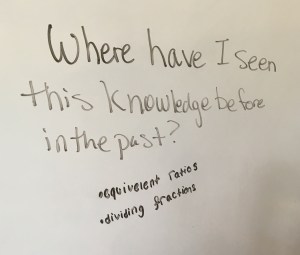 Where have I seen
this knowledge before
in the past?
•equivelent ratios
•dividing fractions